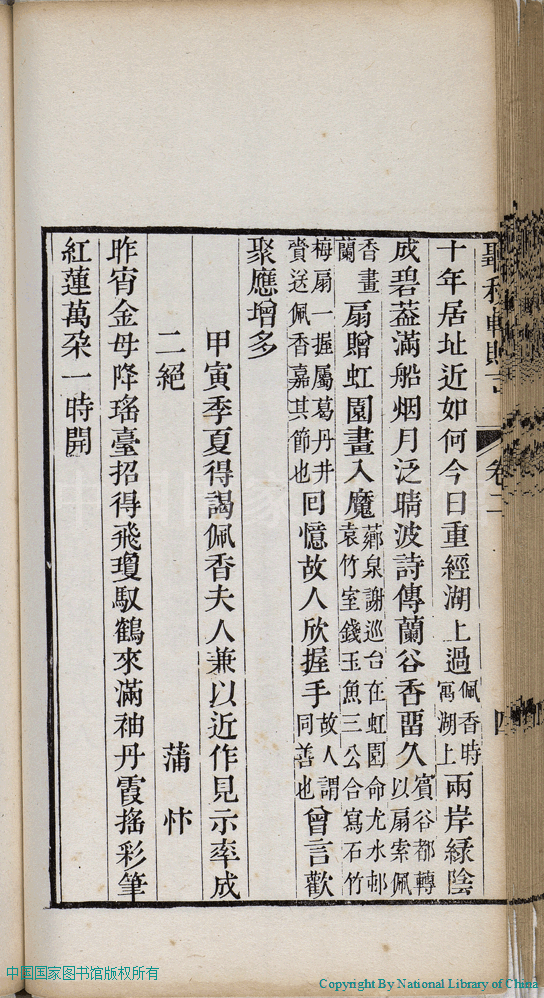 聽秋軒贈言 卷二 四
十年居址近如何今日重經湖上過佩香時寓湖上兩岸綠陰
成碧蓋滿船烟月泛晴波詩傳蘭谷香畱久賓谷都轉以扇索佩
香畫蘭扇贈虹園畫入魔薌泉謝巡台在虹園命尤水邨袁竹室錢玉魚三公合寫石竹
梅扇一握屬葛丹井賫送佩香嘉其節也回憶故人欣握手故人謂同善也曾言歡
聚應增多
甲寅季夏得謁佩香夫人兼以近作見示率成
二絕 蒲忭
昨宵金母降瑤臺招得飛瓊馭鶴來滿袖丹霞搖彩筆
紅蓮萬朶一時開
中国国家图书馆版权所有
Copyright By National Library of China